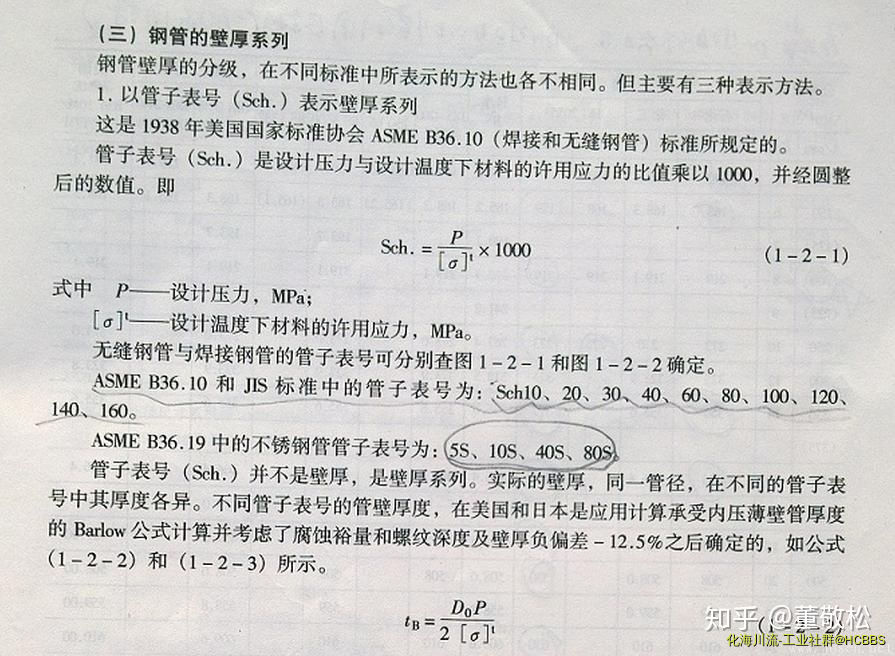 (三) 钢管的壁厚系列
钢管壁厚的分级，在不同标准中所表示的方法也各不相同。但主要有三种表示方法。
1. 以管子表号（Sch.）表示壁厚系列
这是 1938 年美国国家标准协会 ASME B36.10（焊接和无缝钢管）标准所规定的。
管子表号（Sch.）是设计压力与设计温度下材料的许用应力的比值乘以 1000，并经圆整
后的数值。即
Sch. = P/[σ]ᵗ × 1000 (1-2-1)
式中 P——设计压力，MPa；
[σ]ᵗ——设计温度下材料的许用应力，MPa。
无缝钢管与焊接钢管的管子表号可分别查图 1-2-1 和图 1-2-2 确定。
ASME B36.10 和 JIS 标准中的管子表号为：Sch10、20、30、40、60、80、100、120、
140、160。
ASME B36.19 中的不锈钢管管子表号为：5S、10S、40S、80S。
管子表号（Sch.）并不是壁厚，是壁厚系列。实际的壁厚，同一管径，在不同的管子表
号中其厚度各异。不同管子表号的管壁厚度，在美国和日本是应用计算承受内压薄壁管厚度
的 Barlow 公式计算并考虑了腐蚀裕量和螺纹深度及壁厚负偏差 -12.5% 之后确定的，如公式
(1-2-2) 和 (1-2-3) 所示。
t_B = D₀P/2[σ]ᵗ (1-2-2)
知乎 @董敬松
化海川流-工业社群@HCBBS